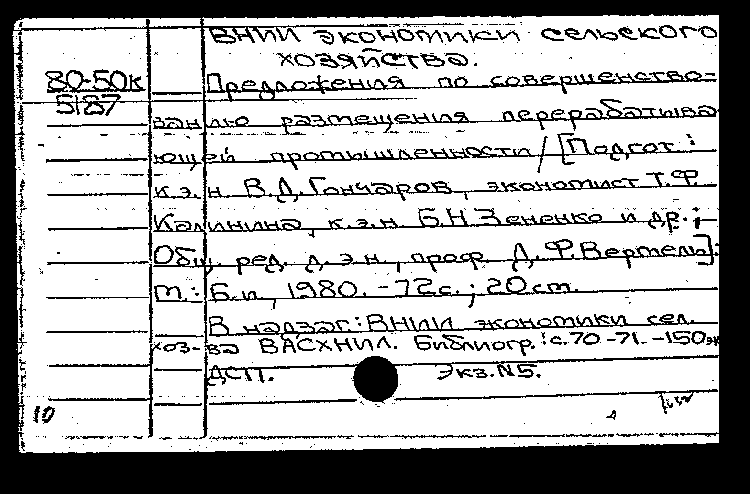 ВНИИ экономики сельского
хозяйства.
80-50к
5187
Предложения по совершенство-
ванию размещения перерабатыва
ющей промышленности / [Подгот.:
к.э.н. В.Д.Гончаров, экономист Т.Ф.
Калинина, к.э.н. Б.Н.Зененко и др.;-
Общ. ред. д.э.н., проф. Д.Ф.Вертель]:
м: Б.и, 1980. -72с.; 20см.
В надзаг: ВНИИ экономики сел.
хоз-ва ВАСХНИЛ. Библиогр.: с.70-71. -150эк
ДСП. Экз.№5.
10